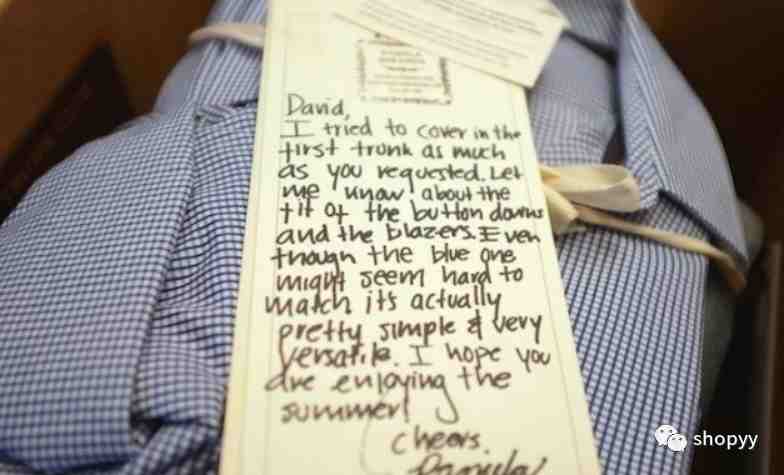 David,
I tried to cover in the
first trunk as much
as you requested. Let
me know about the
fit of the button downs
and the blazers. Even
though the blue one
might seem hard to
match its actually
pretty simple & very
versatile. I hope you
are enjoying the
summer!
Cheers,
shopyy